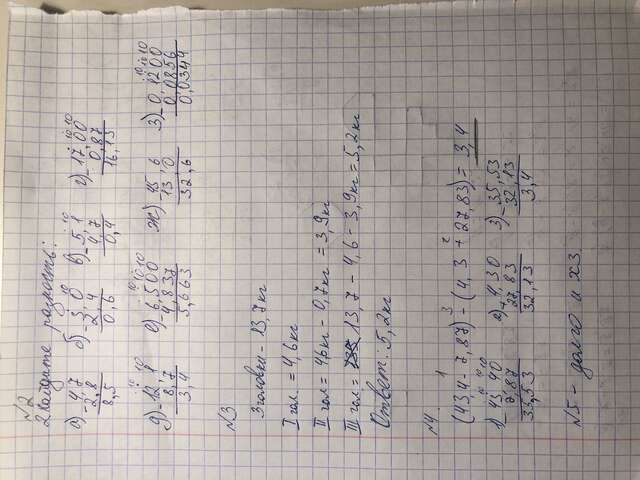 №2
Найдите разность:
а) - 4,7 2,8 3,5
б) - 3,0 2,4 0,6
в) - 5,1 4,7 0,4
г) - 17,00 0,87 16,13
д) - 12,1 8,7 3,4
е) - 6,500 4,837 3,663
ж) - 45,6 13,0 32,6
з) - 0,1200 0,0856 0,0344
№3
3 головки - 13,7 кг
I гол. = 4,6 кг
II гол = 46 кг - 0,7 кг = 3,9 кг
III гол = 13,7 - 4,6 - 3,9 кг = 5,2 кг
Ответ: 5,2 кг
№4
(43,4 - 7,87) - (4,3 + 27,83) = 3,4
1) - 43,40 7,87 35,53
2) + 4,30 27,83 32,13
3) - 35,53 32,13 3,4
№5 - долго и хз